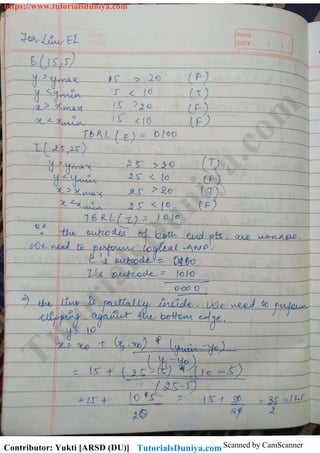 https://www.tutorialsduniya.com
PAGE:
DATE: / /
For Line EI
E(15,5)
y > ymax 15 > 20 (F)
y < ymin 5 < 10 (T)
x > xmax 15 > 20 (F)
x < xmin 15 < 10 (F)
TBRL(E) = 0100
I(25,25)
y > ymax 25 > 20 (T)
y < ymin 25 < 10 (F)
x > xmax 25 > 20 (T)
x < xmin 25 < 10 (F)
TBRL(I) = 1010
∵ the outcodes of both end pts. are nonzero.
We need to perform logical -AND.
E's outcode = 0100
I's outcode = 1010
0000
⇒ the line is partially inside. We need to perform
clipping against the bottom edge.
y = 10
x = x0 + (x1-x0) * (ymin-y0)
(y1-y0)
= 15 + (25-15) * (10-5)
(25-5)
= 15 + 10*5 = 15 + 50 = 35 = 17.5
20 20 2
Contributor: Yukti [ARSD (DU)] TutorialsDuniya.com Scanned by CamScanner